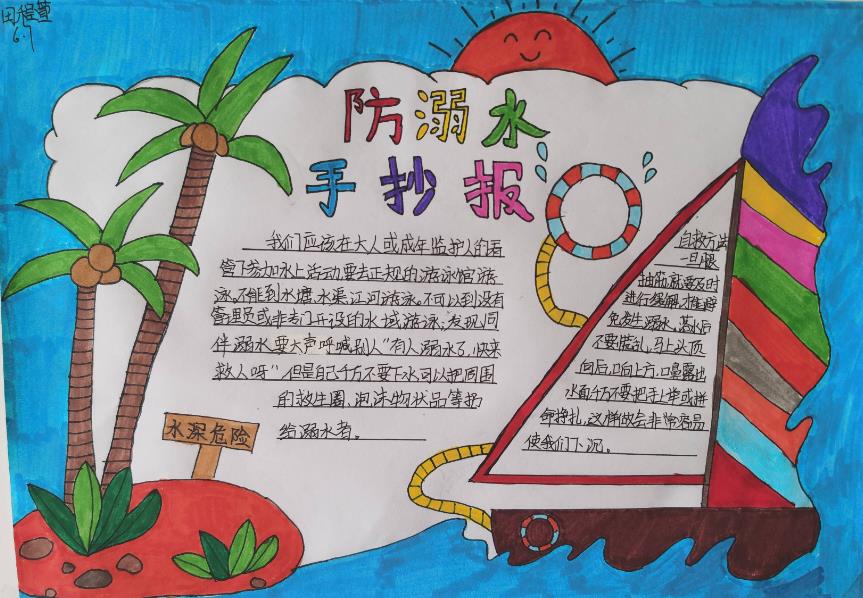 田程萱
6.7
防溺水
手抄报
我们应该在大人或成年监护人的看
管下参加水上活动要去正规的游泳馆游
泳。不能到水塘、水渠、江河游泳。不可以到没有
管理员或非专门开设的水域游泳；发现同
伴溺水要大声呼喊别人“有人溺水了，快来
救人呀”但是自己千万不要下水可以把周围
的救生圈、泡沫物状品等扔
给溺水者。
水深危险
自救方法
一旦
抽筋，就要及时
进行缓解，才能避
免发生溺水，落水后
不要慌乱，马上头顶
向后，口向上方，口鼻露出
水面千万不要把手上举或拼
命挣扎，这样做会非常容易
使我们下沉。